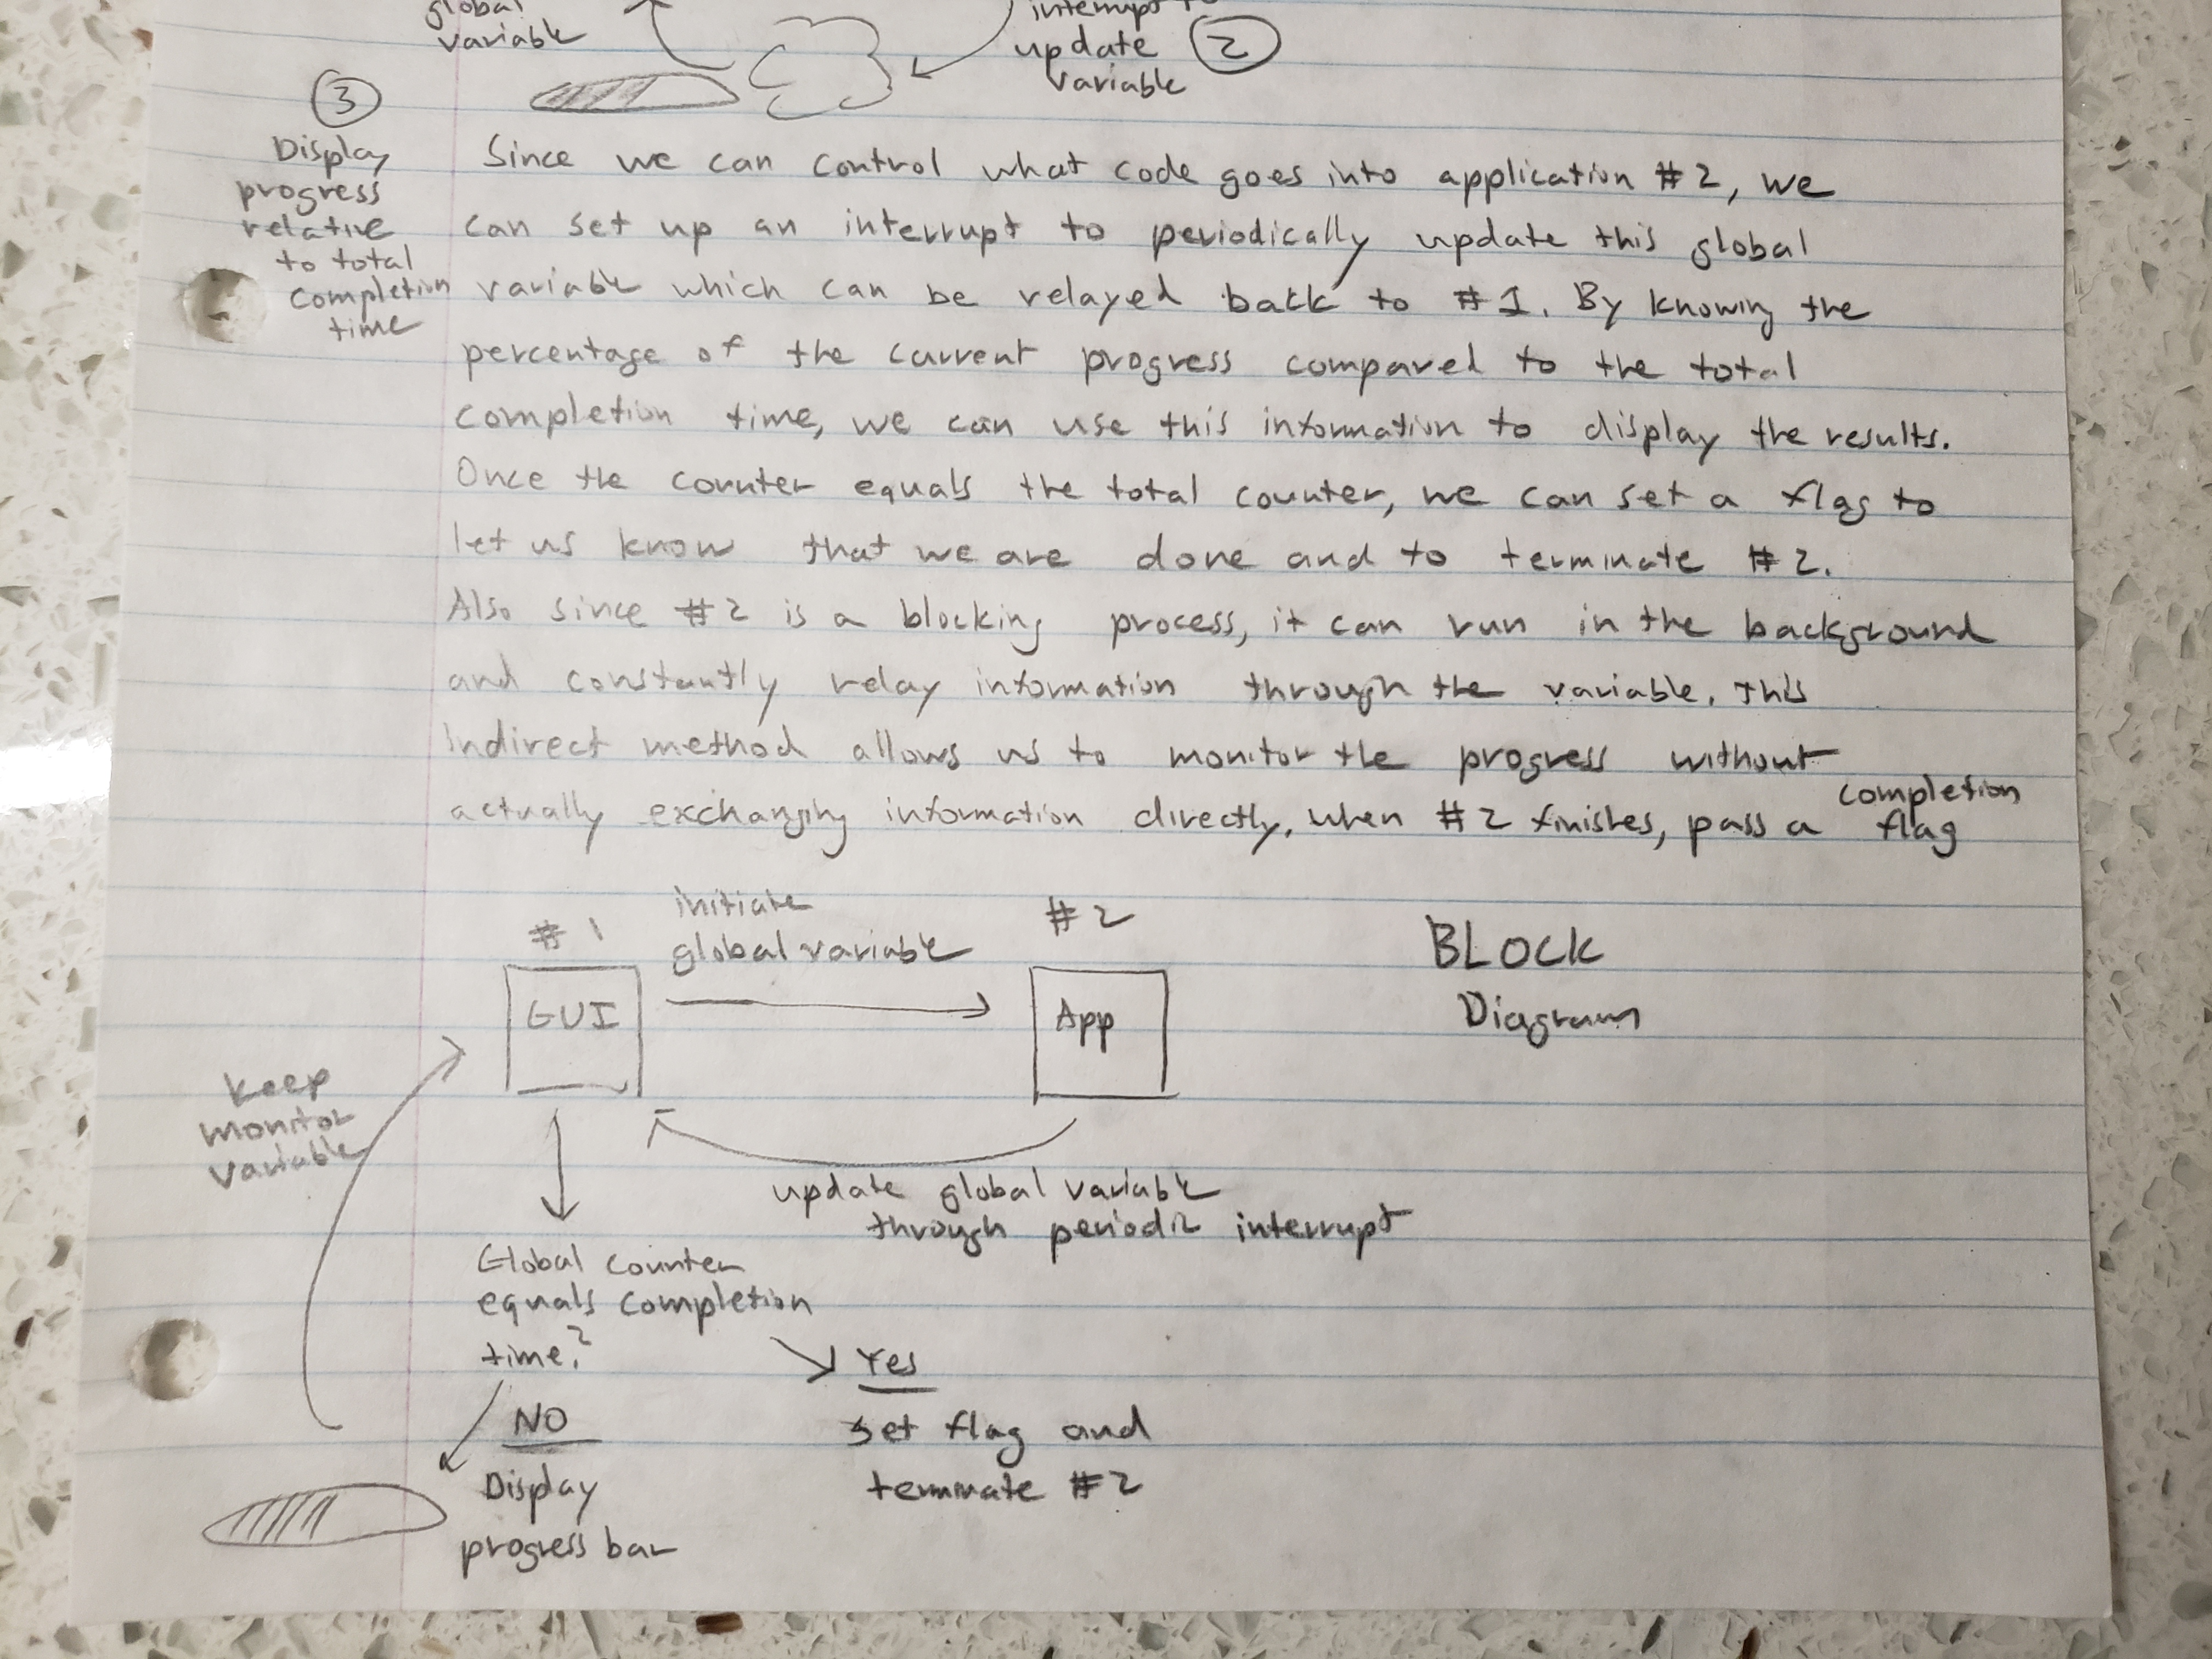 global
variable
interrupt to
update
variable
2
3
Display
progress
relative
to total
completion
time
Since we can control what code goes into application #2, we
can set up an interrupt to periodically update this global
variable which can be relayed back to #1. By knowing the
percentage of the current progress compared to the total
completion time, we can use this information to display the results.
Once the counter equals the total counter, we can set a flag to
let us know that we are done and to terminate #2.
Also since #2 is a blocking process, it can run in the background
and constantly relay information through the variable. This
indirect method allows us to monitor the progress without
actually exchanging information directly. when #2 finishes, pass a completion flag
#1
initiate
global variable
#2
BLOCK
Diagram
GUI
App
keep
monitor
variable
update global variable
through periodic interrupt
Global counter
equals completion
time?
Yes
set flag and
terminate #2
NO
Display
progress bar